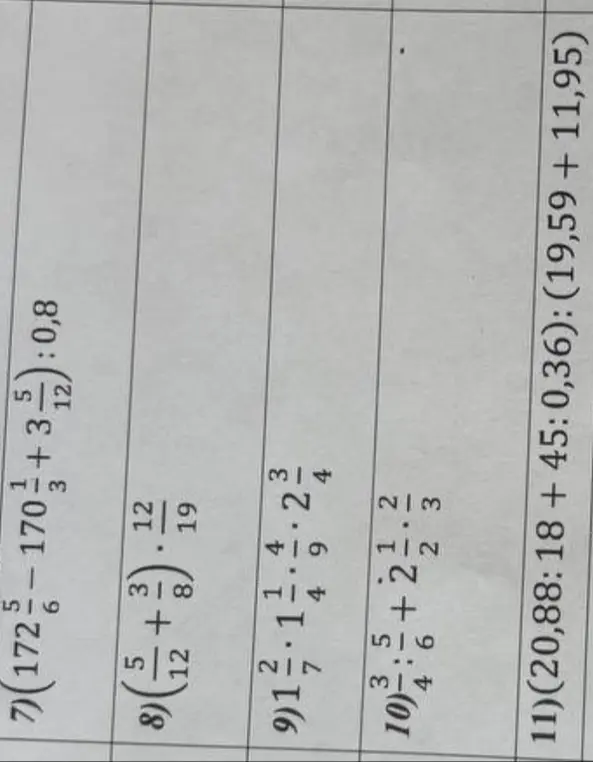 7) (172 5/6 − 170 1/3 + 3 5/12) : 0,8
8) (5/12 + 3/8) · 12/19
9) 1 2/7 · 1 1/4 · 4/9 · 2 3/4
10) 3/4 : 5/6 + 2 1/2 · 2/3
11) (20,88: 18 + 45: 0,36): (19,59 + 11,95)